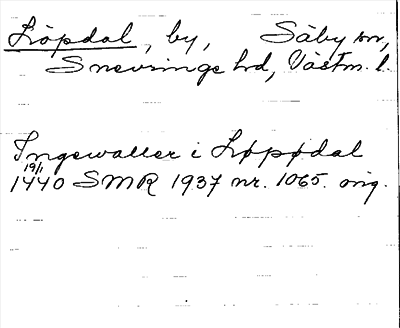 Löpdal, by, Säby sn,
Snevringe hd, Västm. l.
Ingewaller i Løpødal
19/1
1440 SMR 1937 nr. 1065. orig.